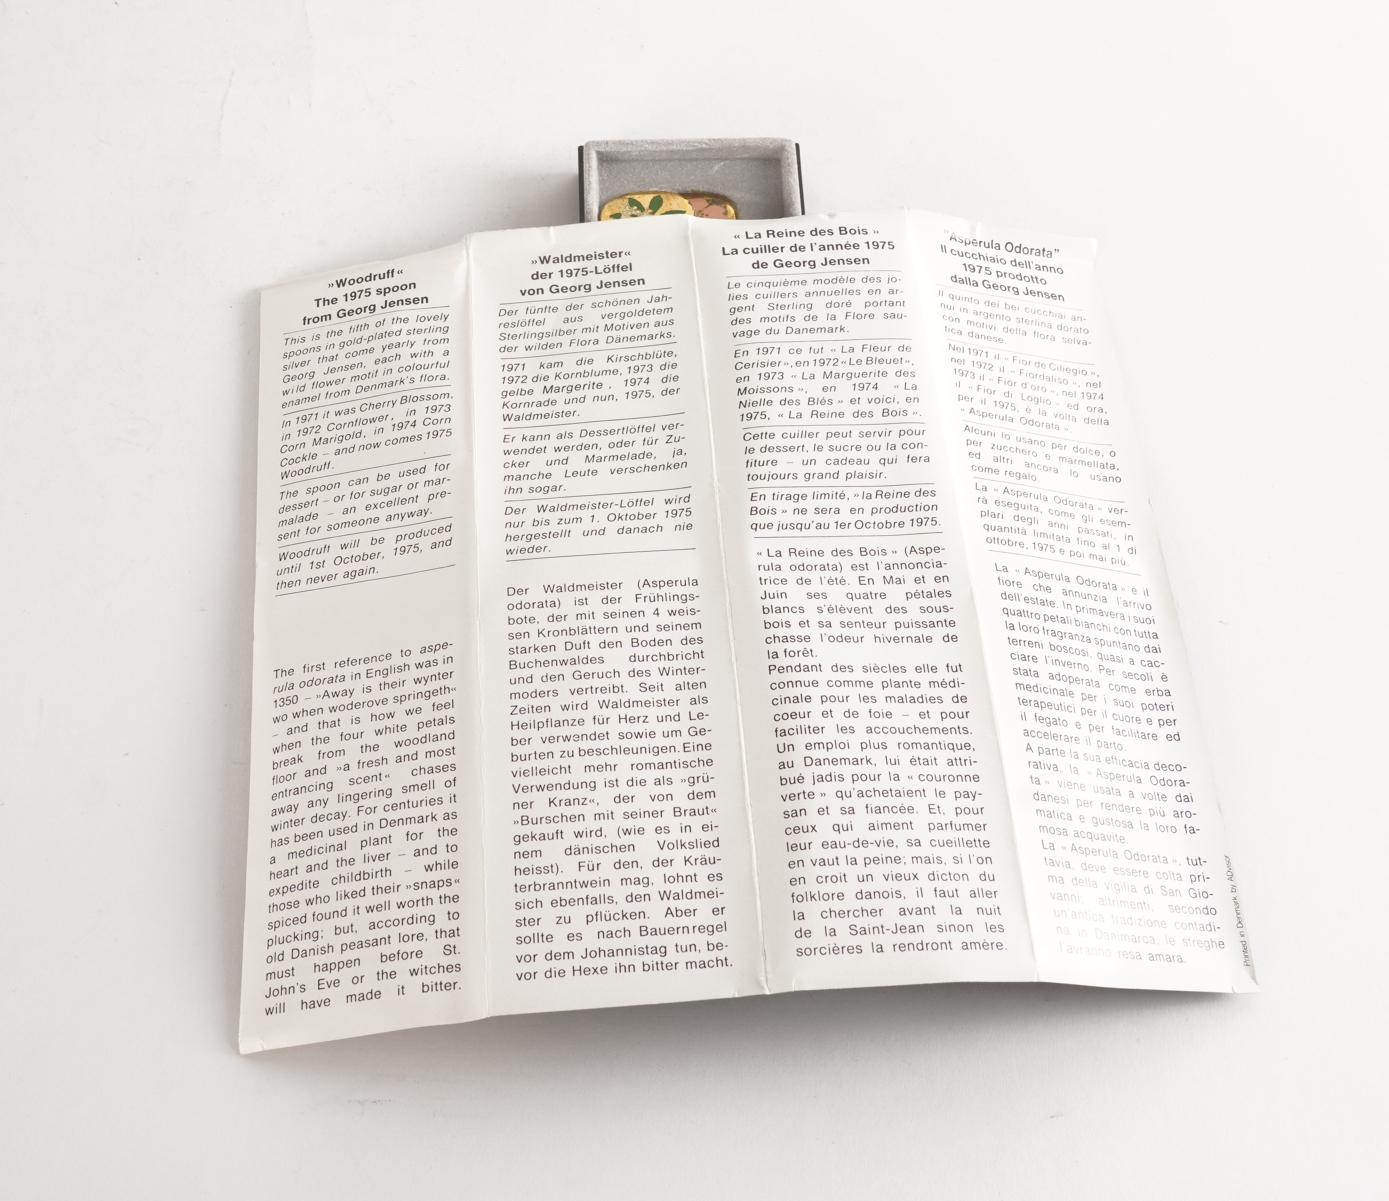 »Woodruff«
The 1975 spoon
from Georg Jensen
This is the fifth of the lovely
spoons in gold-plated sterling
silver that come yearly from
Georg Jensen, each with a
wild flower motif in colourful
enamel from Denmark's flora.
In 1971 it was Cherry Blossom,
in 1972 Cornflower, in 1973
Corn Marigold, in 1974 Corn
Cockle – and now comes 1975
Woodruff.
The spoon can be used for
dessert – or for sugar or mar-
malade – an excellent pre-
sent for someone anyway.
Woodruff will be produced
until 1st October, 1975, and
then never again.
The first reference to aspe-
rula odorata in English was in
1350 – »Away is their wynter
wo when woderove springeth«
– and that is how we feel
when the four white petals
break from the woodland
floor and »a fresh and most
entrancing scent« chases
away any lingering smell of
winter decay. For centuries it
has been used in Denmark as
a medicinal plant for the
heart and the liver – and to
expedite childbirth – while
those who liked their »snaps«
spiced found it well worth the
plucking; but, according to
old Danish peasant lore, that
must happen before St.
John's Eve or the witches
will have made it bitter.
»Waldmeister«
der 1975-Löffel
von Georg Jensen
Der fünfte der schönen Jah-
reslöffel aus vergoldetem
Sterlingsilber mit Motiven aus
der wilden Flora Dänemarks.
1971 kam die Kirschblüte,
1972 die Kornblume, 1973 die
gelbe Margerite , 1974 die
Kornrade und nun, 1975, der
Waldmeister.
Er kann als Dessertlöffel ver-
wendet werden, oder für Zu-
cker und Marmelade, ja,
manche Leute verschenken
ihn sogar.
Der Waldmeister-Löffel wird
nur bis zum 1. Oktober 1975
hergestellt und danach nie
wieder.
Der Waldmeister (Asperula
odorata) ist der Frühlings-
bote, der mit seinen 4 weis-
sen Kronblättern und seinem
starken Duft den Boden des
Buchenwaldes durchbricht
und den Geruch des Winter-
moders vertreibt. Seit alten
Zeiten wird Waldmeister als
Heilpflanze für Herz und Le-
ber verwendet sowie um Ge-
burten zu beschleunigen. Eine
vielleicht mehr romantische
Verwendung ist die als »grü-
ner Kranz«, der von dem
»Burschen mit seiner Braut«
gekauft wird, (wie es in ei-
nem dänischen Volkslied
heisst). Für den, der Kräu-
terbranntwein mag, lohnt es
sich ebenfalls, den Waldmei-
ster zu pflücken. Aber er
sollte es nach Bauernregel
vor dem Johannistag tun, be-
vor die Hexe ihn bitter macht.
« La Reine des Bois »
La cuiller de l'année 1975
de Georg Jensen
Le cinquième modèle des jo-
lies cuillers annuelles en ar-
gent Sterling doré portant
des motifs de la Flore sau-
vage du Danemark.
En 1971 ce fut « La Fleur de
Cerisier », en 1972 « Le Bleuet »,
en 1973 « La Marguerite des
Moissons », en 1974 « La
Nielle des Blés » et voici, en
1975, « La Reine des Bois ».
Cette cuiller peut servir pour
le dessert, le sucre ou la con-
fiture – un cadeau qui fera
toujours grand plaisir.
En tirage limité, » la Reine des
Bois » ne sera en production
que jusqu'au 1er Octobre 1975.
« La Reine des Bois » (Aspe-
rula odorata) est l'annoncia-
trice de l'été. En Mai et en
Juin ses quatre pétales
blancs s'élèvent des sous-
bois et sa senteur puissante
chasse l'odeur hivernale de
la forêt.
Pendant des siècles elle fut
connue comme plante médi-
cinale pour les maladies de
coeur et de foie – et pour
faciliter les accouchements.
Un emploi plus romantique,
au Danemark, lui était attri-
bué jadis pour la « couronne
verte » qu'achetaient le pay-
san et sa fiancée. Et, pour
ceux qui aiment parfumer
leur eau-de-vie, sa cueillette
en vaut la peine; mais, si l'on
en croit un vieux dicton du
folklore danois, il faut aller
la chercher avant la nuit
de la Saint-Jean sinon les
sorcières la rendront amère.
"Asperula Odorata"
Il cucchiaio dell'anno
1975 prodotto
dalla Georg Jensen
Il quinto dei bei cucchiai an-
nui in argento sterlina dorato
con motivi della flora selva-
tica danese.
Nel 1971 il « Fior de Ciliegio »,
nel 1972 il « Fiordaliso », nel
1973 il « Fior d'oro », nel 1974
il « Fior di Loglio » ed ora,
per il 1975, è la volta della
« Asperula Odorata ».
Alcuni lo usano per dolce, o
per zucchero e marmellata,
ed altri ancora lo usano
come regalo.
La « Asperula Odorata » ver-
rà eseguita, come gli esem-
plari degli anni passati, in
quantità limitata fino al 1 di
ottobre, 1975 e poi mai più.
La « Asperula Odorata » è il
fiore che annunzia l'arrivo
dell'estate. In primavera i suoi
quattro petali bianchi con tutta
la loro fragranza spuntano dai
terreni boscosi, quasi a cac-
ciare l'inverno. Per secoli è
stata adoperata come erba
medicinale per i suoi poteri
terapeutici per il cuore e per
il fegato e per facilitare ed
accelerare il parto.
A parte la sua efficacia deco-
rativa, la « Asperula Odora-
ta » viene usata a volte dai
danesi per rendere più aro-
matica e gustosa la loro fa-
mosa acquavite.
La « Asperula Odorata », tut-
tavia, deve essere colta pri-
ma della vigilia di San Gio-
vanni; altrimenti, secondo
un'antica tradizione contadi-
na in Danimarca, le streghe
l'avranno resa amara.
Printed in Denmark by ADvisor